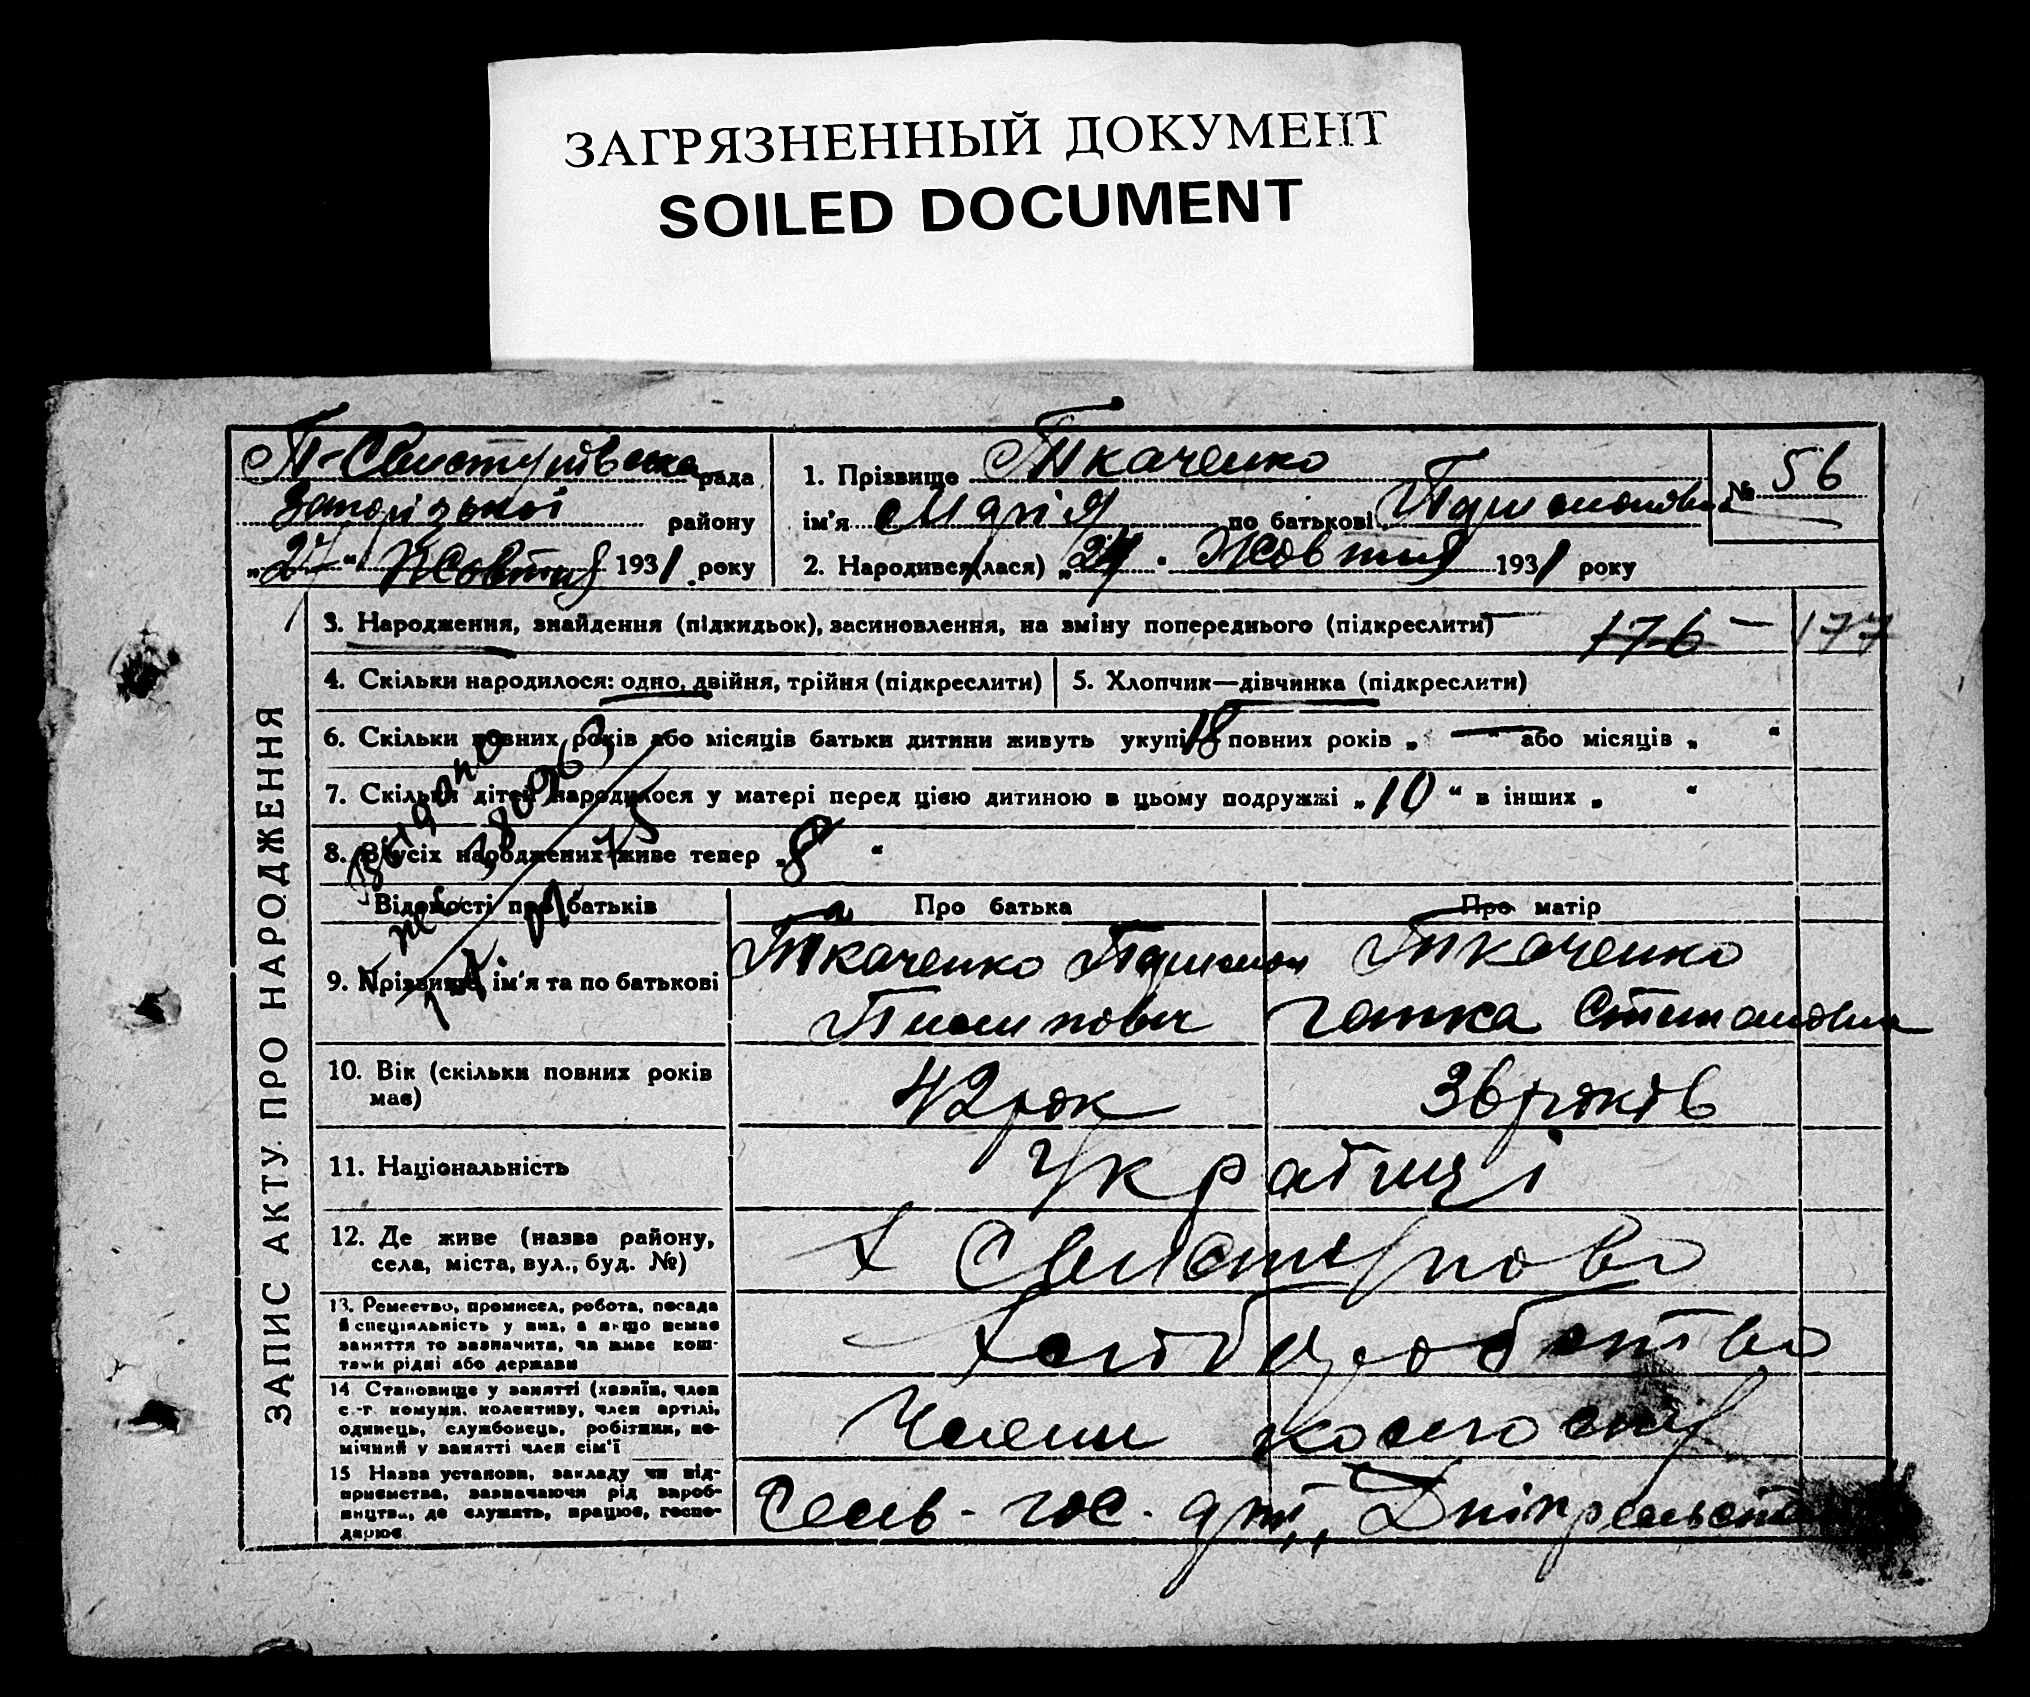 ЗАГРЯЗНЕННЫЙ ДОКУМЕНТ
SOILED DOCUMENT
П-Свистунівська рада
Запорізької району
„24“ Жовтня 1931 року
1. Прізвище Ткаченко
ім'я Марія по батькові Парамонівна
№ 56
2. Народився(лася) „24“ Жовтня 1931 року
ЗАПИС АКТУ ПРО НАРОДЖЕННЯ
3. Народження, знайдення (підкидьок), засиновлення, на зміну попереднього (підкреслити) 176 — 177
4. Скільки народилося: одно, двійня, трійня (підкреслити)
5. Хлопчик—дівчинка (підкреслити)
6. Скільки повних років або місяців батьки дитини живуть укупі 18 повних років „ — “ або місяців „ “
7. Скільки дітей народилося у матері перед цією дитиною в цьому подружжі „10“ в інших „ “
8. З усіх народжених живе тепер „8“
Відомості про батьків
Про батька
Про матір
9. Прізвище ім'я та по батькові
Ткаченко Парамон
Пилипович
Ткаченко
Ганка Степановна
10. Вік (скільки повних років має)
42 рок
36 років
11. Національність
Українці
12. Де живе (назва району, села, міста, вул., буд. №)
х Свистуново
13. Ремество, промисел, робота, посада й спеціяльність у них, а якщо немає заняття то зазначити, чи живе коштами рідні або держави
Хліборобство
14 Становище у занятті (хазяїн, член с.-г комуни, колективу, член артілі, одинець, службовець, робітник, помічний у занятті член сім'ї
Члени колгоспу
15 Назва установи, закладу чи підприємства, зазначаючи рід виробництва, де служить, працює, господарює
Сель-гос. арт. „Дніпрельстан